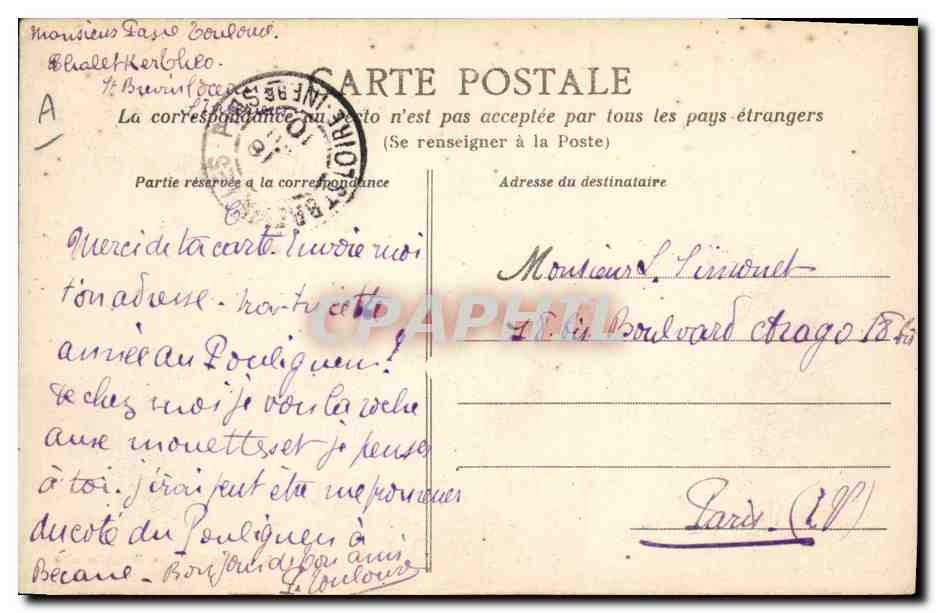 Monsieur
Chalet Ker Cléo.
St Brevin l'Océan
A
CARTE POSTALE
La correspondance au recto n'est pas acceptée par tous les pays étrangers
(Se renseigner à la Poste)
Partie réservée à la correspondance
Merci de ta carte. Envoie moi
ton adresse. Iras-tu cette
année au Pouliguen!
De chez moi je vois la roche
aux mouettes et je pense
à toi. j'irai peut être me promener
du coté du Pouliguen à
Bécane - Bonjour de ton ami
Adresse du destinataire
Monsieur L. Simonet
18 bis Boulvard Arago 18 bis
Paris
CPAPHIL